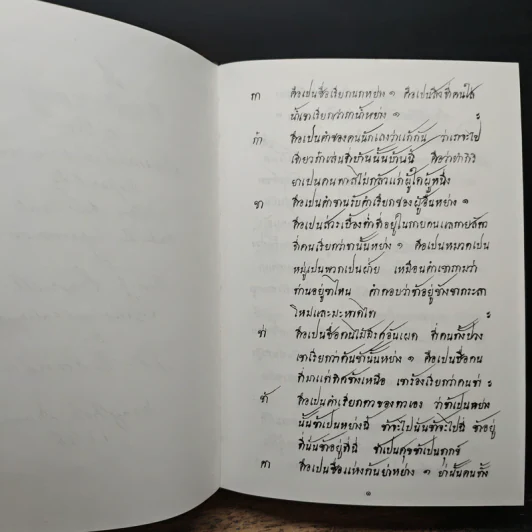 กา คือเป็นชื่อเรียกนกหย่าง ๑ คือเป็นสิ่งที่คนใส่
น้ำเขาเรียกว่ากาน้ำหย่าง ๑
กำ คือเป็นคำของคนนักเลงว่าแก่กัน ว่าเราจะไป
เที่ยวกำเล่นสักบ้านนั้นบ้านนี้ คือว่าทำกิริ
ยาเป็นคนพาลไม่กลัวแก่ผู้ใดผู้หนึ่ง
ขา คือเป็นคำขานรับคำเรียกของผู้อื่นหย่าง ๑
คือเป็นอวัยวะเบื้องต่ำที่อยู่ในกายคนแลกายสัตว
ที่คนเรียกว่าขานั้นหย่าง ๑ คือเป็นหมวดเป็น
หมู่เป็นพวกเป็นฝ่าย เหมือนคำเขาถามว่า
ท่านอยู่ขาไหน คำตอบว่าข้าอยู่ข้างขา
ใหม่และมะหาดไท
ข่า คือเป็นชื่อต้นไม้ ที่คนทั้งปวง
เขาเรียกว่าต้นข่านั้นหย่าง ๑ คือเป็นชื่อคน
ที่มาแต่ทิศข้างเหนือ เขาร้องเรียกว่าคนข่า ะ
ข้า คือเป็นคำเรียกตัวของตัวเอง ว่าข้าเป็นหย่าง
นั้นข้าเป็นหย่างนี้ ข้าจะไปนั่นข้าจะไปนี่ ข้าอยู่
ที่นั่นข้าอยู่ที่นี่ ข้าเป็นศุขข้าเป็นทุกข์
คา คือเป็นชื่อแห่งต้นย่าหย่าง ๑ ย่านั้นคนทั้ง
๑